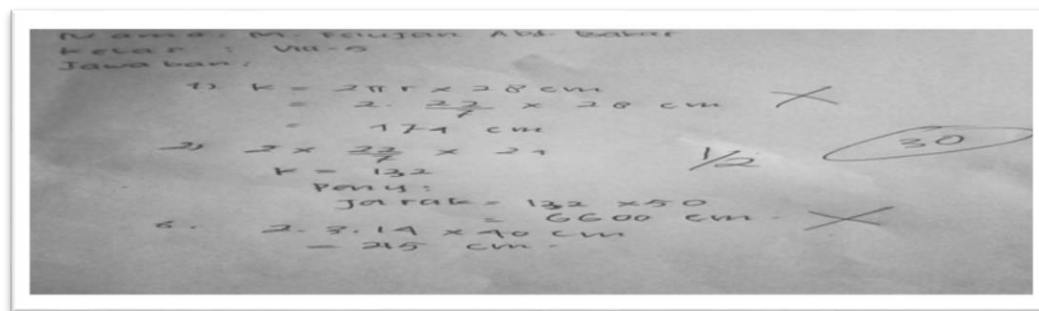 Nama : M. Abd. Bakar
Kelas : VIII-5
Jawaban :
1) K = 2πr x 28 cm
= 2. 22/7 x 28 cm
= 171 cm
2) 2 x 22/7 x 21
K = 132
Peny :
Jarak = 132 x 50
= 6600 cm
2. 3.14 x 40 cm
= 215 cm
1/2
30